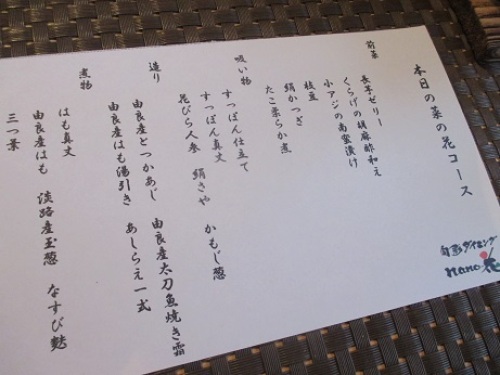 本日の菜の花コース
前菜
長予ゼリー
くらげの胡麻酢和え
小アジの南蛮漬け
枝豆
絹かつぎ
たこ柔らか煮
吸い物
すっぽん仕立て
すっぽん真丈
花びら人参 絹さや かもじ葱
造り
由良産とつかあじ 由良産太刀魚焼き霜
由良産はも湯引き あしらえ一式
煮物
はも真丈
由良産はも 淡路産玉葱 なすび麩
三つ葉
旬彩ダイニング
nano花